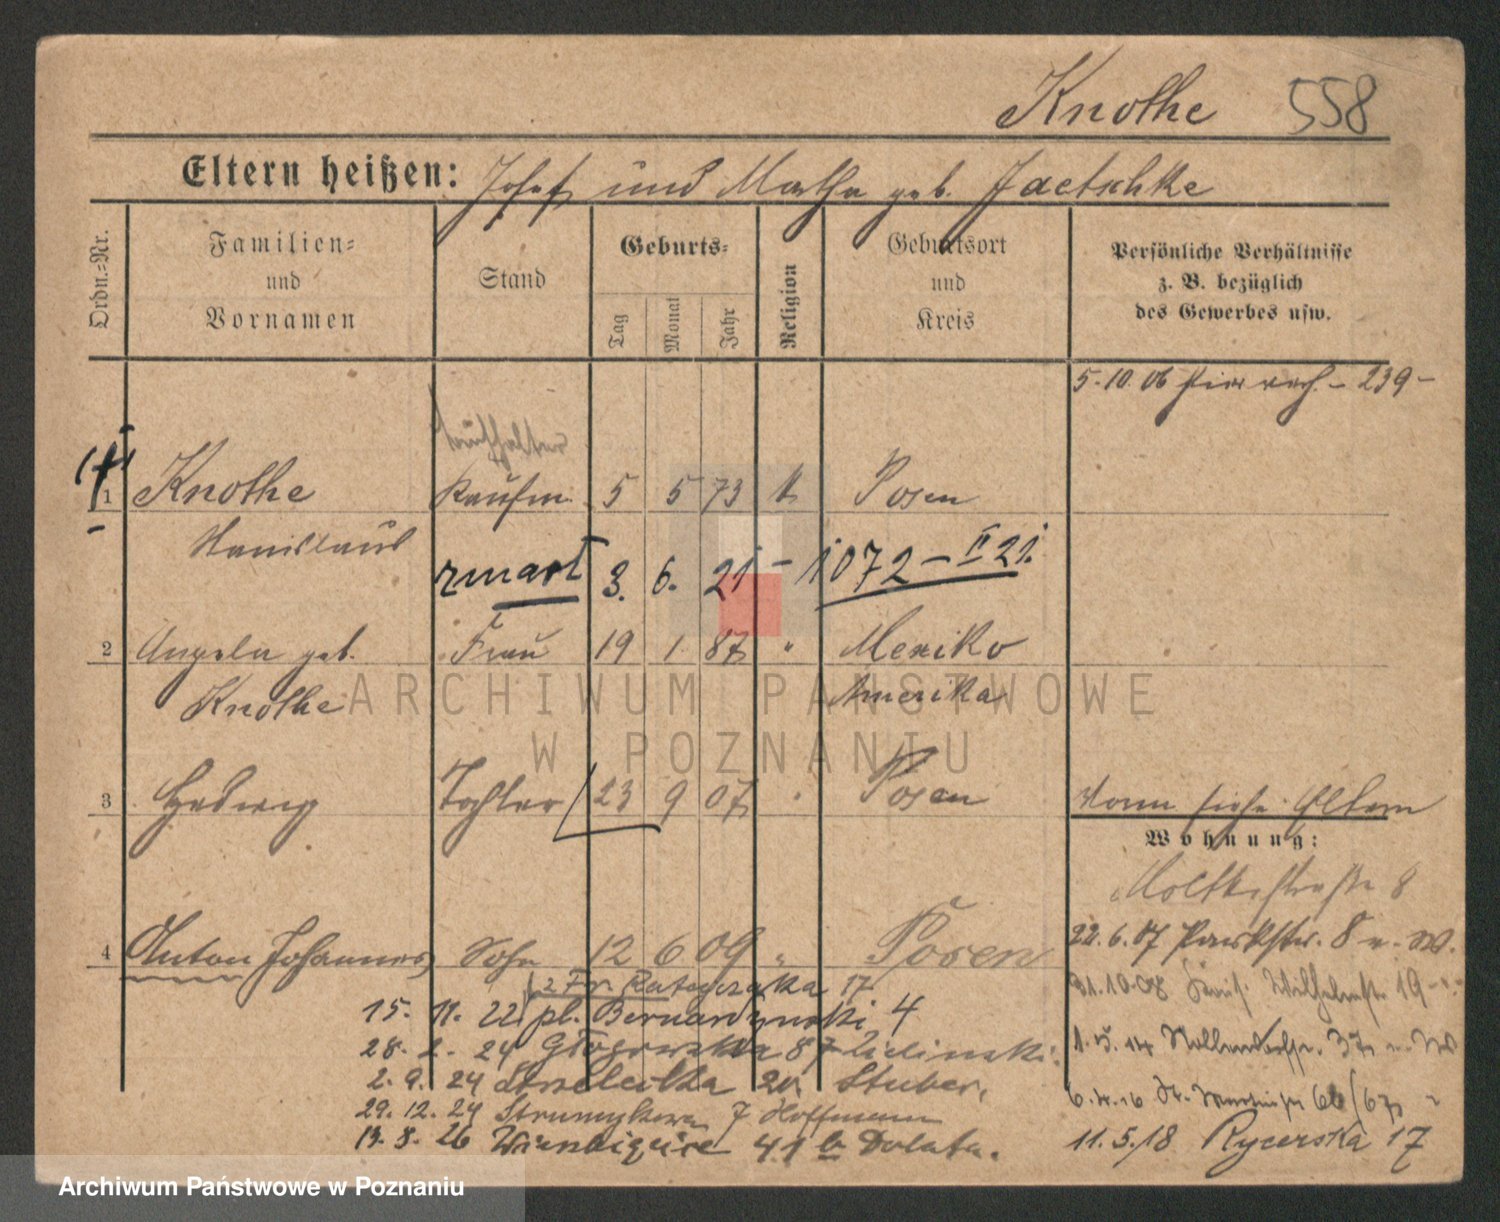 Knothe 558
Eltern heißen: Josef und Martha geb. Jaetschke
Ordn.=Nr.
Familien=
und
Vornamen
Stand
Geburts=
Tag
Monat
Jahr
Religion
Geburtsort
und
Kreis
Persönliche Verhältnisse
z. B. bezüglich
des Gewerbes usw.
5.10.06 - 239 -
Buchhalter
1 Knothe Kaufm. 5 5 73 k Posen
Stanislaus
zmarł 3. 6. 21 - 1072 - II 21.
2 Angela geb. Frau 19 1. 87 " Mexiko
Knothe Amerika
3 Hedwig Tochter 23 9 07 " Posen
Vorm siehe Eltern
Wohnung:
Moltkestraße 8
4 Anton Johannes Sohn 12 6 09 " Posen
22.6.07 Parkstr. 8 u. W.
Fr. Ratajczaka 17
31.10.08 Kais. Wilhelmstr. 19
15. 11. 22 pl. Bernardynski 4
28. 2. 24 Głogowska 87 Zielinski.
1.5.14 37
2. 9. 24 Strzelecka 20. Stuber.
29. 12. 24 Strumykowa 7 Hoffmann
6.4.16 St. Martinstr 66/67
13. 8. 26 41 b Dolata.
11.5.18 Rycerska 17
ARCHIWUM PAŃSTWOWE
W POZNANIU
Archiwum Państwowe w Poznaniu